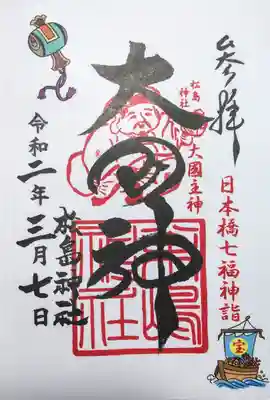 奉拝
日本橋七福神詣
松島神社
大國主神
大国神
松島神社
令和二年三月七日
松島神社
宝